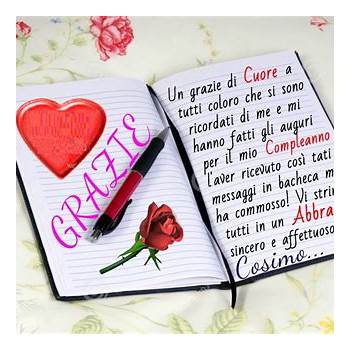 GRAZIE
Un grazie di Cuore a
tutti coloro che si sono
ricordati di me e mi
hanno fatti gli auguri
per il mio Compleanno
l'aver ricevuto così tati
messaggi in bacheca m
ha commosso! Vi strin
tutti in un Abbra
sincero e affettuoso
Cosimo...